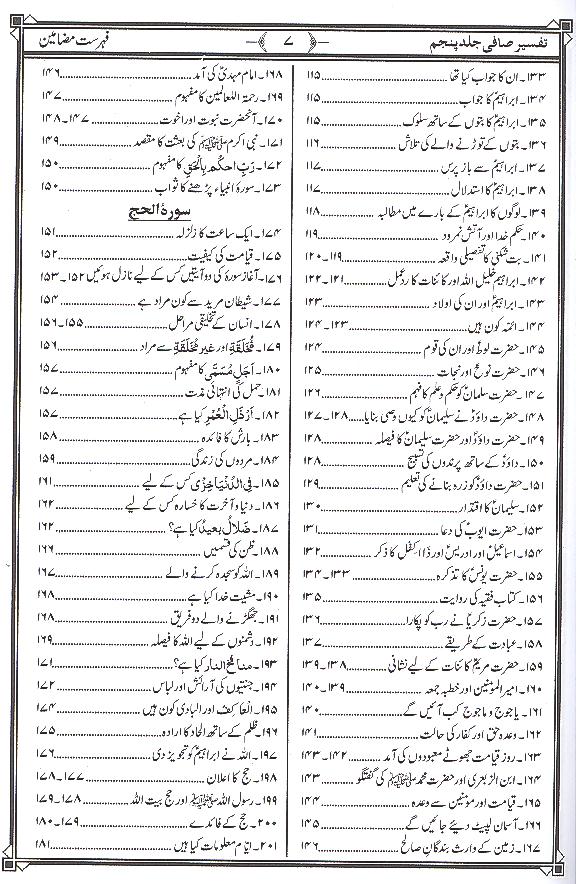 تفسیر صافی جلد پنجم
﴿ ۷ ﴾
فہرست مضامین
۱۳۳۔ ان کا جواب کیا تھا ۱۱۵
۱۳۴۔ ابراہیمؑ کا جواب ۱۱۵
۱۳۵۔ ابراہیمؑ کا بتوں کے ساتھ سلوک ۱۱۵
۱۳۶۔ بتوں کے توڑنے والے کی تلاش ۱۱۶
۱۳۷۔ ابراہیمؑ سے باز پرس ۱۱۷
۱۳۸۔ ابراہیمؑ کا استدلال ۱۱۷
۱۳۹۔ لوگوں کا ابراہیمؑ کے بارے میں مطالبہ ۱۱۸
۱۴۰۔ حکم خدا اور آتش نمرود ۱۱۹
۱۴۱۔ بت شکنی کا تفصیلی واقعہ ۱۱۹۔۱۲۰
۱۴۲۔ ابراہیمؑ خلیل اللہ اور کائنات کا ردعمل ۱۲۱۔۱۲۲
۱۴۳۔ ابراہیمؑ اور ان کی اولاد ۱۲۳
۱۴۴۔ ائمہ کون ہیں ۱۲۳۔۱۲۴
۱۴۵۔ حضرت لوطؑ اور ان کی قوم ۱۲۴
۱۴۶۔ حضرت نوحؑ اور نجات ۱۲۵
۱۴۷۔ حضرت سلیمانؑ کو حکم و علم کا فہم ۱۲۶
۱۴۸۔ حضرت داؤدؑ نے سلیمانؑ کو کیوں وصی بنایا ۱۲۷۔۱۲۸
۱۴۹۔ حضرت داؤدؑ اور حضرت سلیمانؑ کا فیصلہ ۱۲۸
۱۵۰۔ داؤدؑ کے ساتھ پرندوں کی تسبیح ۱۲۸
۱۵۱۔ حضرت داؤدؑ کو زرہ بنانے کی تعلیم ۱۲۹
۱۵۲۔ سلیمانؑ کا اقتدار ۱۳۰
۱۵۳۔ حضرت ایوبؑ کی دعا ۱۳۱
۱۵۴۔ اسماعیلؑ اور ادریسؑ اور ذا الکفلؑ کا ذکر ۱۳۲
۱۵۵۔ حضرت یونسؑ کا تذکرہ ۱۳۳۔۱۳۴
۱۵۶۔ کتاب فقیہ کی روایت ۱۳۵
۱۵۷۔ حضرت زکریاؑ نے رب کو پکارا ۱۳۶
۱۵۸۔ عبادت کے طریقے ۱۳۷
۱۵۹۔ حضرت مریمؑ کائنات کے لیے نشانی ۱۳۸۔۱۳۹
۱۶۰۔ امیر المؤمنینؑ اور خطبہ جمعہ ۱۳۹۔۱۴۰
۱۶۱۔ یاجوج و ماجوج کب آئیں گے ۱۴۰
۱۶۲۔ وعدہ حق اور کفار کی حالت ۱۴۱
۱۶۳۔ روز قیامت جھوٹے معبودوں کی آمد ۱۴۲۔۱۴۳
۱۶۴۔ ابن الزبعری اور حضرت محمد ﷺ کی گفتگو ۱۴۳
۱۶۵۔ قیامت اور مؤمنین سے وعدہ ۱۴۴
۱۶۶۔ آسمان لپیٹ دیئے جائیں گے ۱۴۵
۱۶۷۔ زمین کے وارث بندگانِ صالح ۱۴۶
۱۶۸۔ امام مہدیؑ کی آمد ۱۴۶
۱۶۹۔ رحمۃ اللعالمین کا مفہوم ۱۴۷
۱۷۰۔ آنحضرت نبوت اور اخوت ۱۴۷۔۱۴۸
۱۷۱۔ نبی اکرم ﷺ کی بعثت کا مقصد ۱۴۹
۱۷۲۔ رَبِّ احْكُم بِالْحَقِّ کا مفہوم ۱۵۰
۱۷۳۔ سورۂ انبیاء پڑھنے کا ثواب ۱۵۰
سورة الحج
۱۷۴۔ ایک ساعت کا زلزلہ ۱۵۱
۱۷۵۔ قیامت کی کیفیت ۱۵۲
۱۷۶۔ آغاز سورہ کی دو آیتیں کس کے لیے نازل ہوئیں ۱۵۲۔۱۵۳
۱۷۷۔ شیطان مرید سے کون مراد ہے ۱۵۴
۱۷۸۔ انسان کے تخلیقی مراحل ۱۵۵۔۱۵۶
۱۷۹۔ مُخَلَّقَةٍ اور غَيْرِ مُخَلَّقَةٍ سے مراد ۱۵۶
۱۸۰۔ اَجَلٍ مُّسَمًّى کا مفہوم ۱۵۷
۱۸۱۔ حمل کی انتہائی مدت ۱۵۷
۱۸۲۔ اَرْذَلِ الْعُمُرِ کیا ہے ۱۵۷
۱۸۳۔ بارش کا فائدہ ۱۵۸
۱۸۴۔ مردوں کی زندگی ۱۵۹
۱۸۵۔ فِي الدُّنْيَا خِزْيٌ کس کے لیے ۱۶۱
۱۸۶۔ دنیا و آخرت کا خسارہ کس کے لیے ۱۶۲
۱۸۷۔ ضَلَالٌ بَعِيدٌ کیا ہے؟ ۱۶۲
۱۸۸۔ ظن کی قسمیں ۱۶۶
۱۸۹۔ اللہ کو سجدہ کرنے والے ۱۶۷
۱۹۰۔ مشیت خدا کیا ہے ۱۶۸
۱۹۱۔ جھگڑنے والے دو فریق ۱۶۸
۱۹۲۔ دشمنوں کے لیے اللہ کا فیصلہ ۱۶۹
۱۹۳۔ منافخ النار کیا ہے؟ ۱۷۱
۱۹۴۔ جنتیوں کی آرائش اور لباس ۱۷۲
۱۹۵۔ العاکف اور البادی کون ہیں ۱۷۴
۱۹۶۔ ظلم کے ساتھ الحاد کا ارادہ ۱۷۵
۱۹۷۔ اللہ نے ابراہیمؑ کو تجویز دی ۱۷۶
۱۹۸۔ حج کا اعلان ۱۷۷۔۱۷۸
۱۹۹۔ رسول اللہ ﷺ اور حج بیت اللہ ۱۷۸۔۱۷۹
۲۰۰۔ حج کے فائدے ۱۷۹۔۱۸۰
۲۰۱۔ ایّام معلومات کیا ہیں ۱۸۱